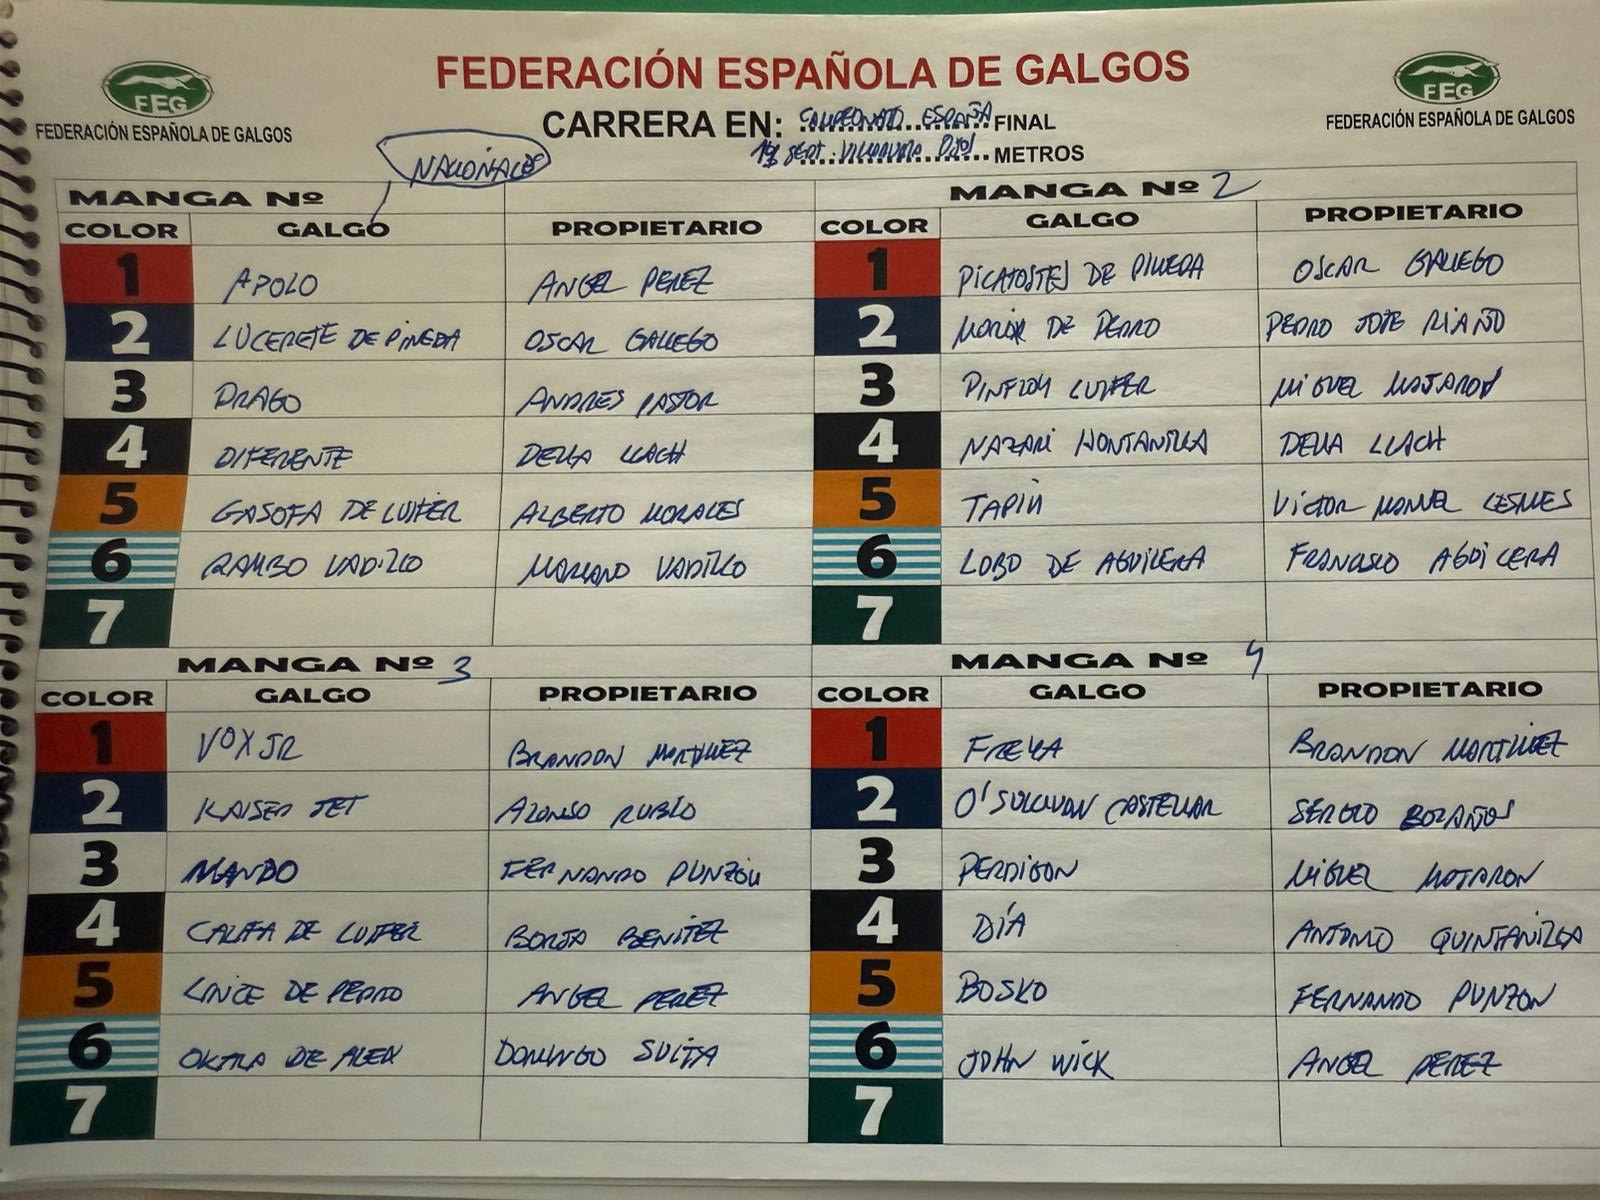 FEDERACIÓN ESPAÑOLA DE GALGOS
FEG
FEDERACIÓN ESPAÑOLA DE GALGOS
FEG
FEDERACIÓN ESPAÑOLA DE GALGOS
CARRERA EN: CAMPEONATO ESPAÑA FINAL
SEPT. METROS
NACIONALES
MANGA Nº
COLOR GALGO PROPIETARIO
1 APOLO ANGEL PEREZ
2 LUCERETE DE PINEDA OSCAR GALLEGO
3 DRAGO ANDRES PASTOR
4 DIFERENTE DELLA LLACH
5 GASOFA DE LUIFER ALBERTO MORALES
6 RAMBO VADILLO MARIANO VADILLO
7
MANGA Nº 2
COLOR GALGO PROPIETARIO
1 PICATOSTES DE PINEDA OSCAR GALLEGO
2 DE PEDRO PEDRO JOSE RIAÑO
3 PINFLOY LUIFER MIGUEL MOJARON
4 NAZARI HONTANILLA DELLA LLACH
5 TAPIN VICTOR MANUEL LESMES
6 LOBO DE AGUILERA FRANCISCO AGUILERA
7
MANGA Nº 3
COLOR GALGO PROPIETARIO
1 VOX JR BRANDON MARTINEZ
2 KAISER JET ALONSO RUBIO
3 MANDO FERNANDO PUNZON
4 CALIFA DE LUIFER BORJA BENITEZ
5 LINCE DE PEDRO ANGEL PEREZ
6 DE ALEX DOMINGO
7
MANGA Nº 4
COLOR GALGO PROPIETARIO
1 FREYA BRANDON MARTINEZ
2 O'SULLIVAN CASTELLAR SERGIO BOLAÑOS
3 PERDIGON MIGUEL MOJARON
4 DÍA ANTONIO QUINTANILLA
5 BOSKO FERNANDO PUNZON
6 JOHN WICK ANGEL PEREZ
7